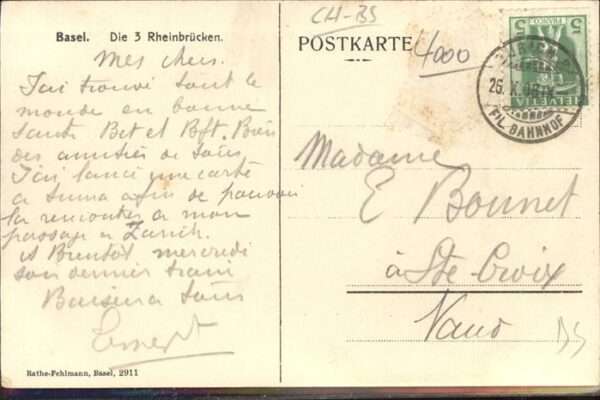 Basel. Die 3 Rheinbrücken.
CH-BS
POSTKARTE
4000
Mes chers.
J'ai trouvé tout le
monde en bonne
santé Bet et Bft. Bien
des amitiés de tous
J'ai lancé une carte
a Suma afin de pouvoir
la rencontrer a mon
passage a Zurich.
A Bientôt. mercredi
soir dernier train
Baisers a tous
Ernest
Madame
E Bonnet
à Ste Croix
Vaud
BS
5
FRANCO
HELVETIA
26. X.
FIL. BAHNHOF
Rathe-Fehlmann, Basel, 2911